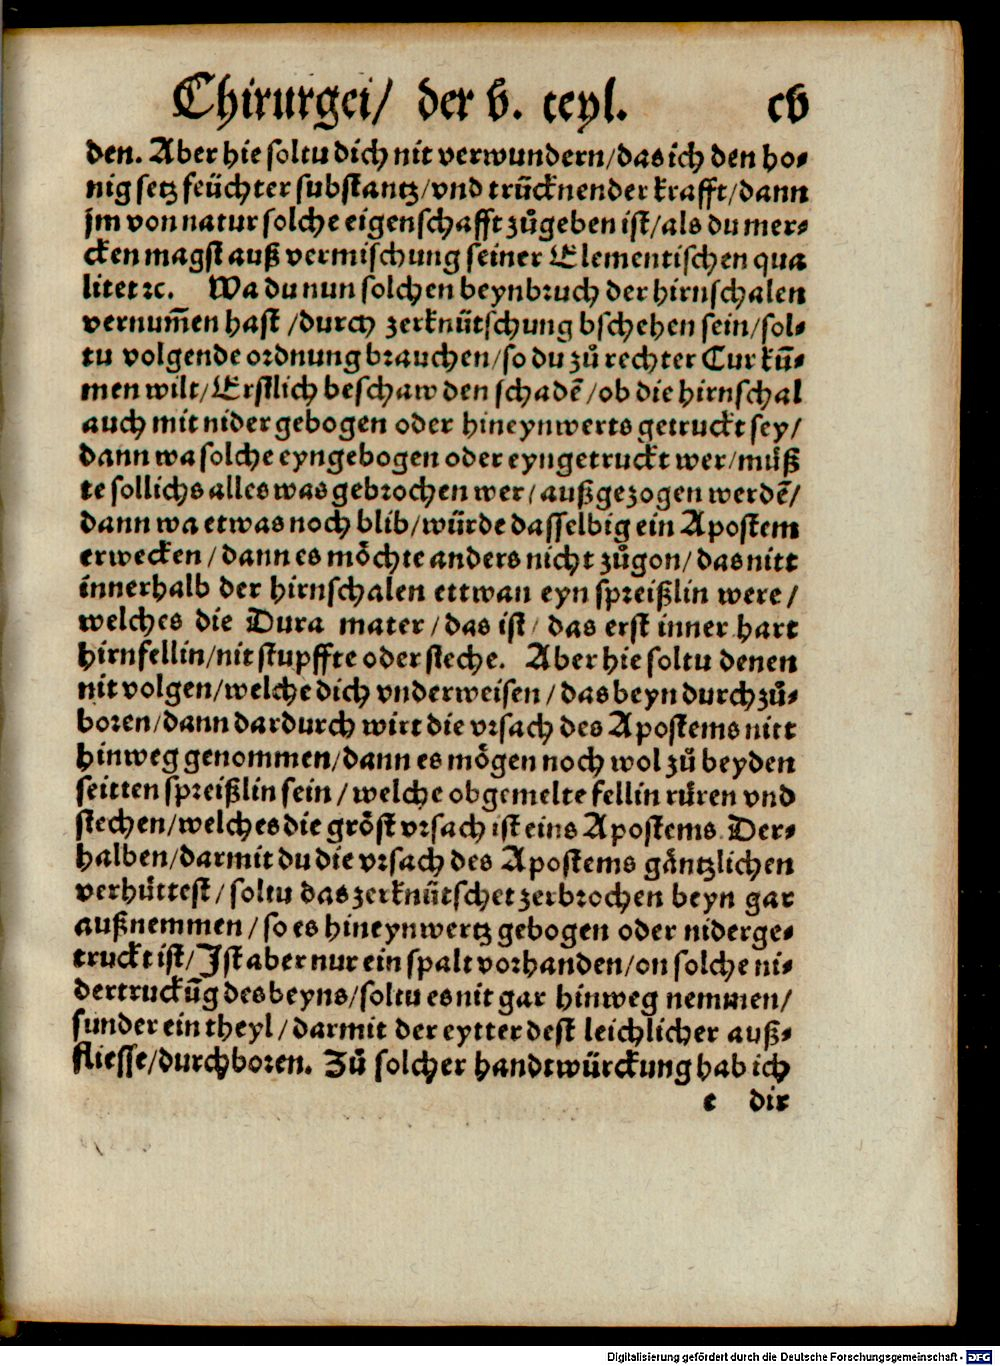 Chirurgei/ der v. teyl. cv
den. Aber hie soltu dich nit verwundern/das ich den ho⸗
nig setz feüchter substantz/vnd trücknender krafft/dann
jm von natur solche eigenschafft zůgeben ist/als du mer⸗
cken magst auß vermischung seiner Elementischen qua
litet ⁊c. Wa du nun solchen beynbruch der hirnschalen
vernum̃en hast /durch zerknütschung bschehen sein/sol⸗
tu volgende ordnung brauchen/so du zů rechter Cur kũ⸗
men wilt/Erstlich beschaw den schadẽ/ob die hirnschal
auch mit nider gebogen oder hineynwerts getruckt sey/
dann wa solche eyngebogen oder eyngetruckt wer/můß
te sollichs alles was gebrochen wer/außgezogen werdẽ/
dann wa etwas noch blib/würde dasselbig ein Apostem
erwecken/dann es möchte anders nicht zůgon/das nitt
innerhalb der hirnschalen ettwan eyn spreißlin were/
welches die Dura mater/das ist/das erst inner hart
hirnfellin/nit stupffte oder steche. Aber hie soltu denen
nit volgen/welche dich vnderweisen/das beyn durchzů⸗
boren/dann dardurch wirt die vrsach des Apostems nitt
hinweg genommen/dann es mögen noch wol zů beyden
seitten spreißlin sein/welche obgemelte fellin rüren vnd
stechen/welches die gröst vrsach ist eins Apostems Der⸗
halben/darmit du die vrsach des Apostems gäntzlichen
verhüttest/soltu das zerknütschet zerbrochen beyn gar
außnemmen/so es hineynwertz gebogen oder niderge⸗
truckt ist/Ist aber nur ein spalt vorhanden/on solche ni⸗
dertruckũg des beyns/soltu es nit gar hinweg nemmen/
sunder ein theyl/darmit der eytter dest leichlicher auß⸗
fliesse/durchboren. Zů solcher handtwürckung hab ich
e dir
Digitalisierung gefördert durch die Deutsche Forschungsgemeinschaft - DFG